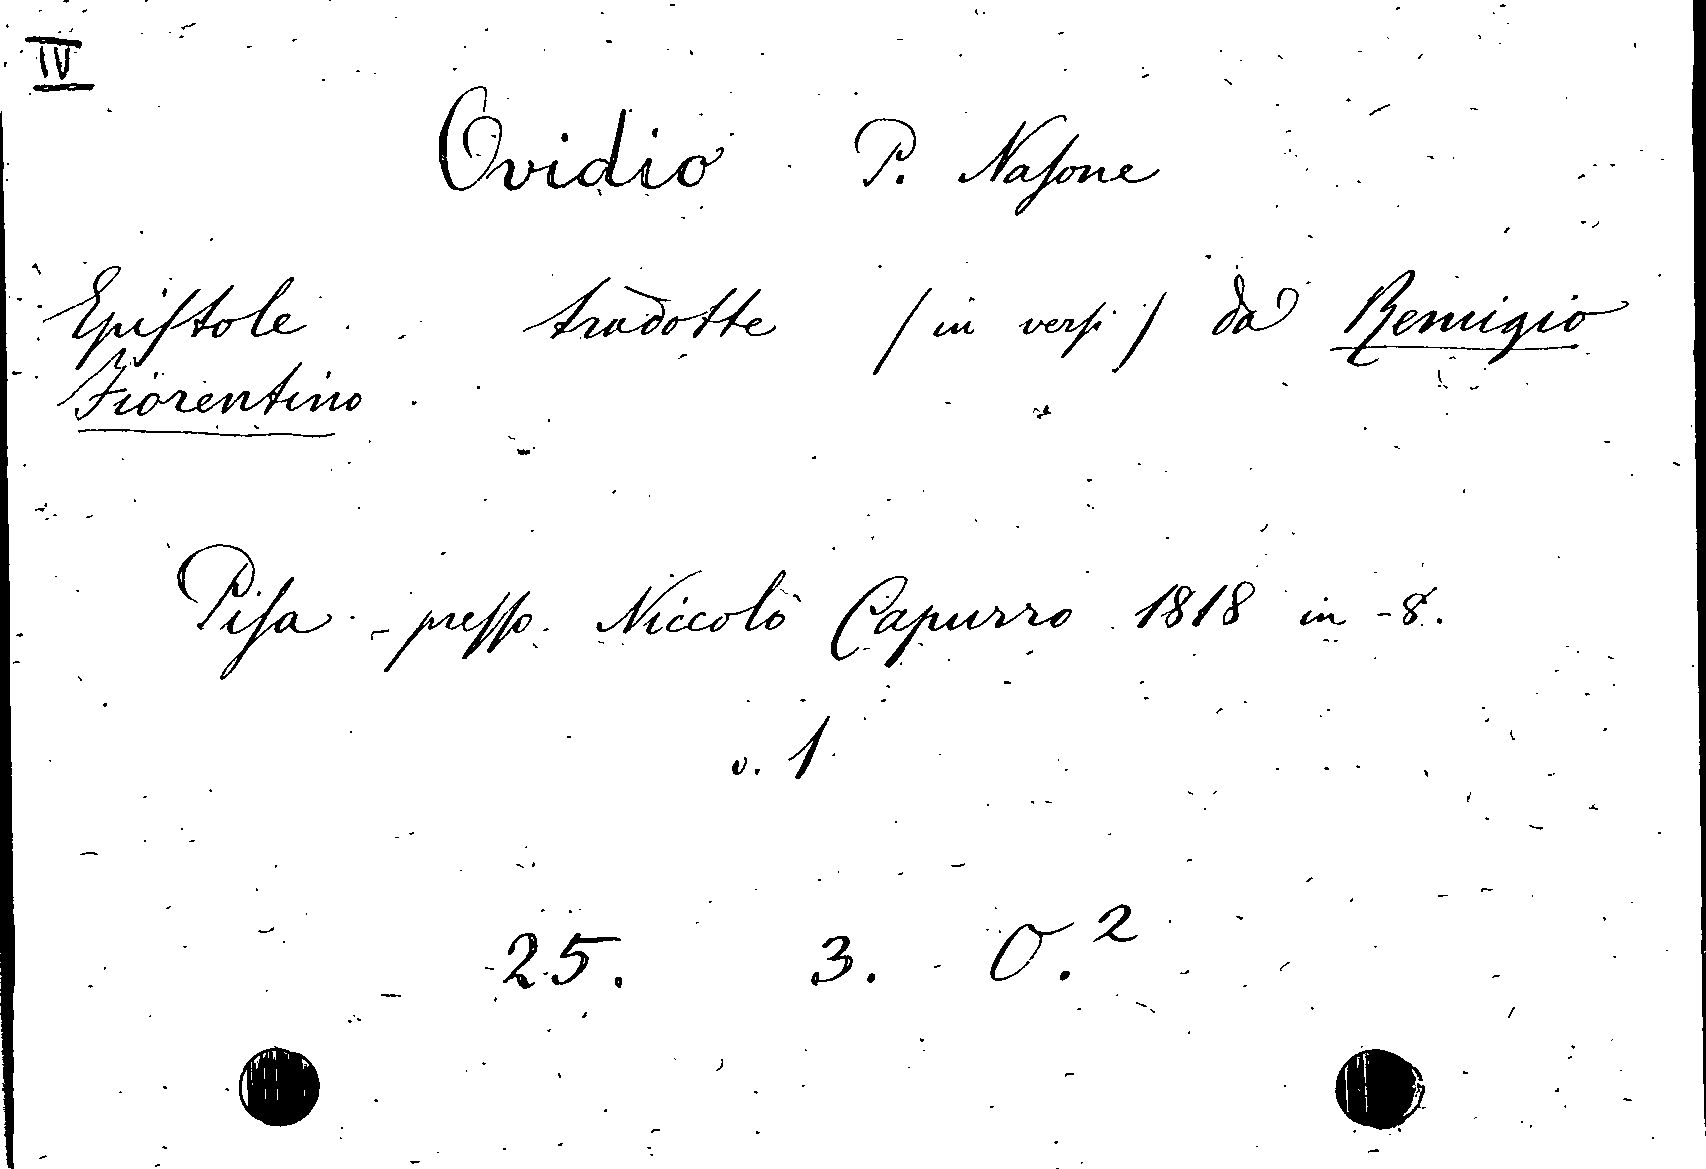 IV
Ovidio P. Naſone
Epiſtole tradotte (in verſi) da Remigio
Fiorentino
Piſa - preſſo Niccolò Capurro 1818 in-8.
v. 1
25. 3. O.²